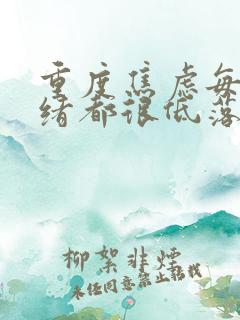 重度焦虑每
绪都很低落
柳絮非烟
未经同意禁止转载